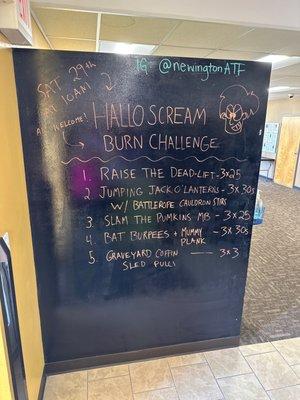 IG = @newingtonATF
SAT! 29th
AT 10AM!
ALL WELCOME!
HALLOSCREAM
BURN CHALLENGE
1. RAISE THE DEAD-LIFT - 3x25
2. JUMPING JACK O'LANTERNS - 3x30s
W/ BATTLEROPE CAULDRON STIRS
3. SLAM THE PUMKINS MB - 3x25
4. BAT BURPEES + MUMMY PLANK - 3x30s
5. GRAVEYARD COFFIN SLED PULL! - 3x3